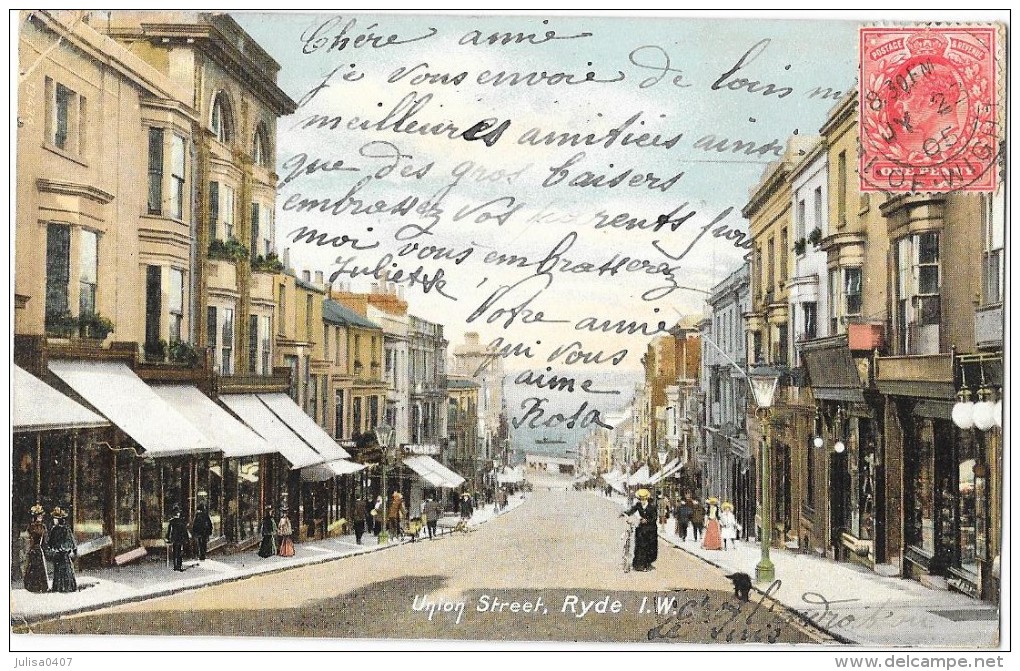 Chère amie
je vous envoie de loin m
meilleures amitiées ainsi
que des gros baisers
embrassez vos parents pour
moi vous embrasserez
Juliette
Votre amie
qui vous
aime
Rosa
POSTAGE & REVENUE
8.30 PM
05
I. OF WIGHT
ONE PENNY
Union Street, Ryde I.W.
je suis
julisa0407